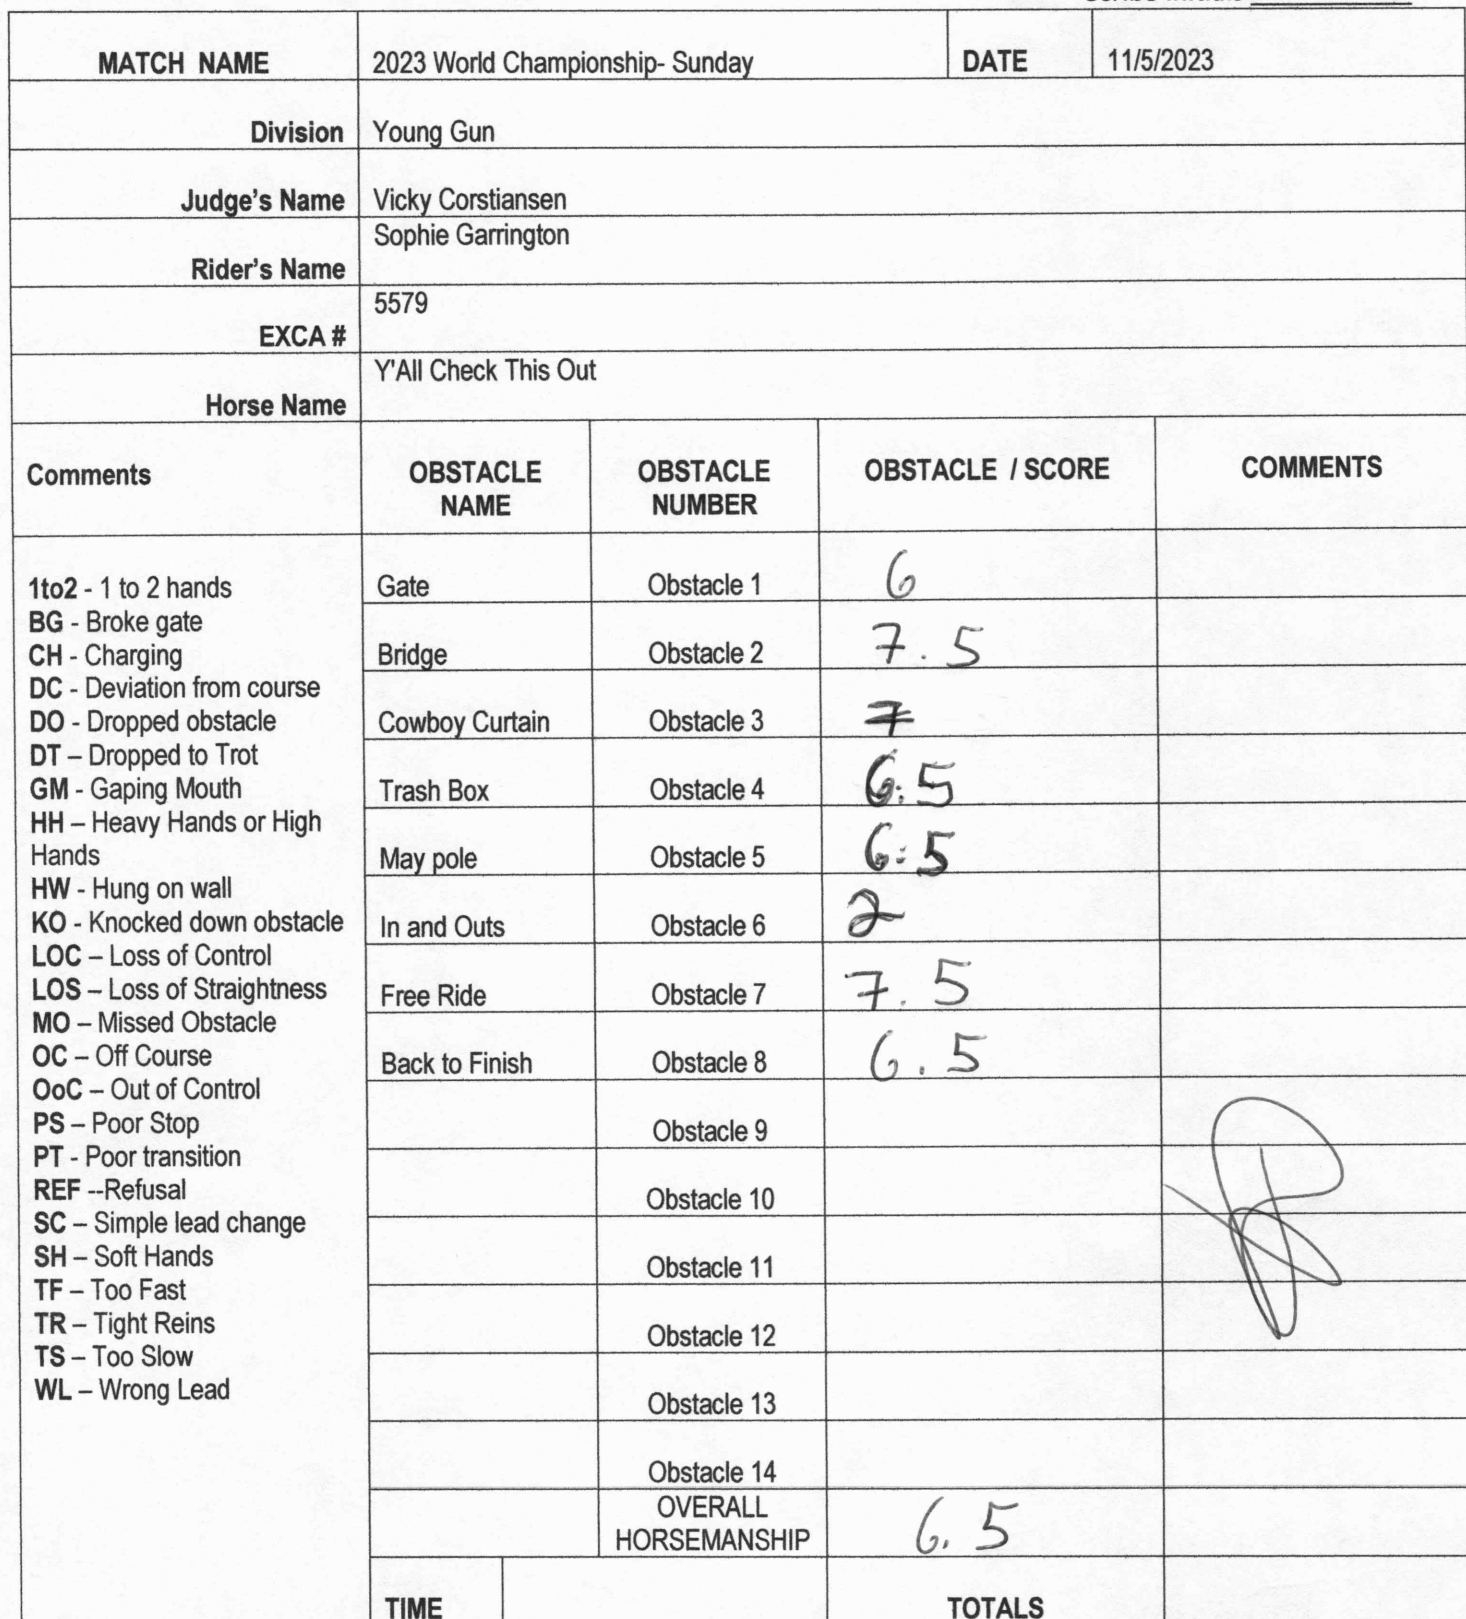 MATCH NAME 2023 World Championship- Sunday DATE 11/5/2023
Division Young Gun
Judge's Name Vicky Corstiansen
Rider's Name Sophie Garrington
EXCA # 5579
Horse Name Y'All Check This Out
Comments OBSTACLE NAME OBSTACLE NUMBER OBSTACLE / SCORE COMMENTS
1to2 - 1 to 2 hands
BG - Broke gate
CH - Charging
DC - Deviation from course
DO - Dropped obstacle
DT – Dropped to Trot
GM - Gaping Mouth
HH – Heavy Hands or High
Hands
HW - Hung on wall
KO - Knocked down obstacle
LOC – Loss of Control
LOS – Loss of Straightness
MO – Missed Obstacle
OC – Off Course
OoC – Out of Control
PS – Poor Stop
PT - Poor transition
REF --Refusal
SC – Simple lead change
SH – Soft Hands
TF – Too Fast
TR – Tight Reins
TS – Too Slow
WL – Wrong Lead
Gate Obstacle 1 6
Bridge Obstacle 2 7.5
Cowboy Curtain Obstacle 3 7
Trash Box Obstacle 4 6.5
May pole Obstacle 5 6.5
In and Outs Obstacle 6 2
Free Ride Obstacle 7 7.5
Back to Finish Obstacle 8 6.5
Obstacle 9
Obstacle 10
Obstacle 11
Obstacle 12
Obstacle 13
Obstacle 14
OVERALL HORSEMANSHIP 6.5
TIME TOTALS